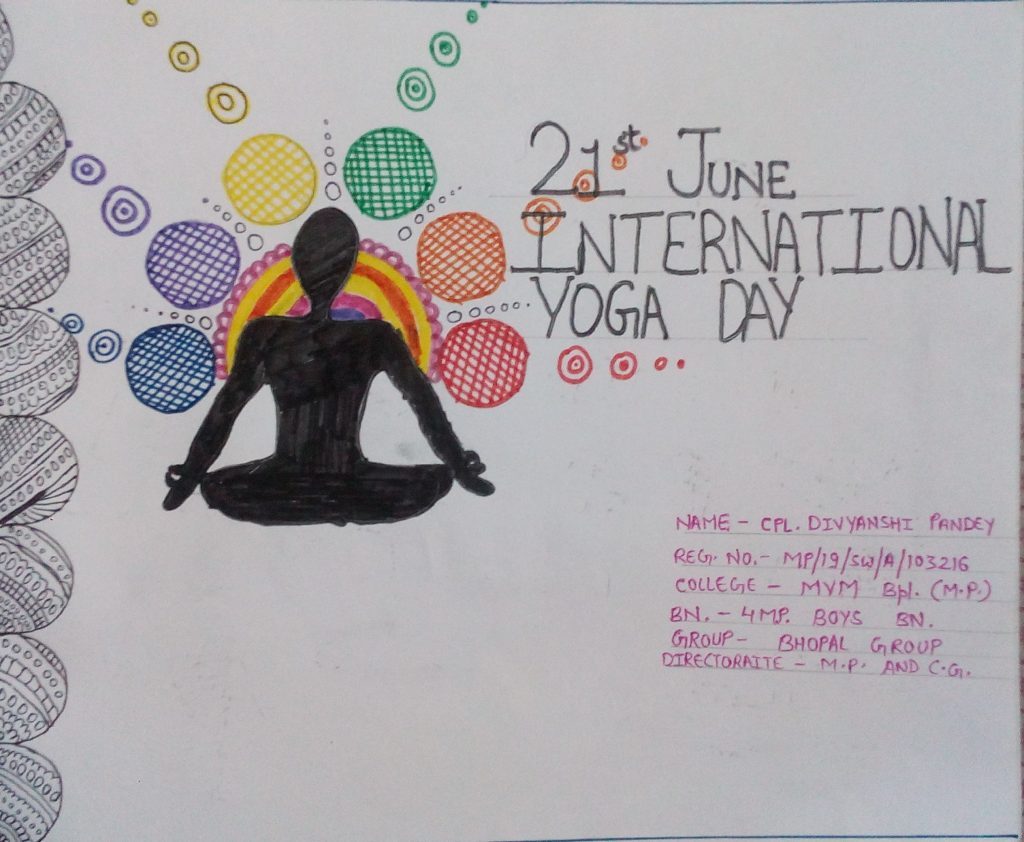 21st June
INTERNATIONAL
YOGA DAY
NAME - CPL. DIVYANSHI PANDEY
REG. NO.- MP/19/SW/A/103216
COLLEGE - MVM Bpl. (M.P.)
BN. - 4 MP. BOYS BN.
GROUP - BHOPAL GROUP
DIRECTORAITE - M.P. AND C.G.